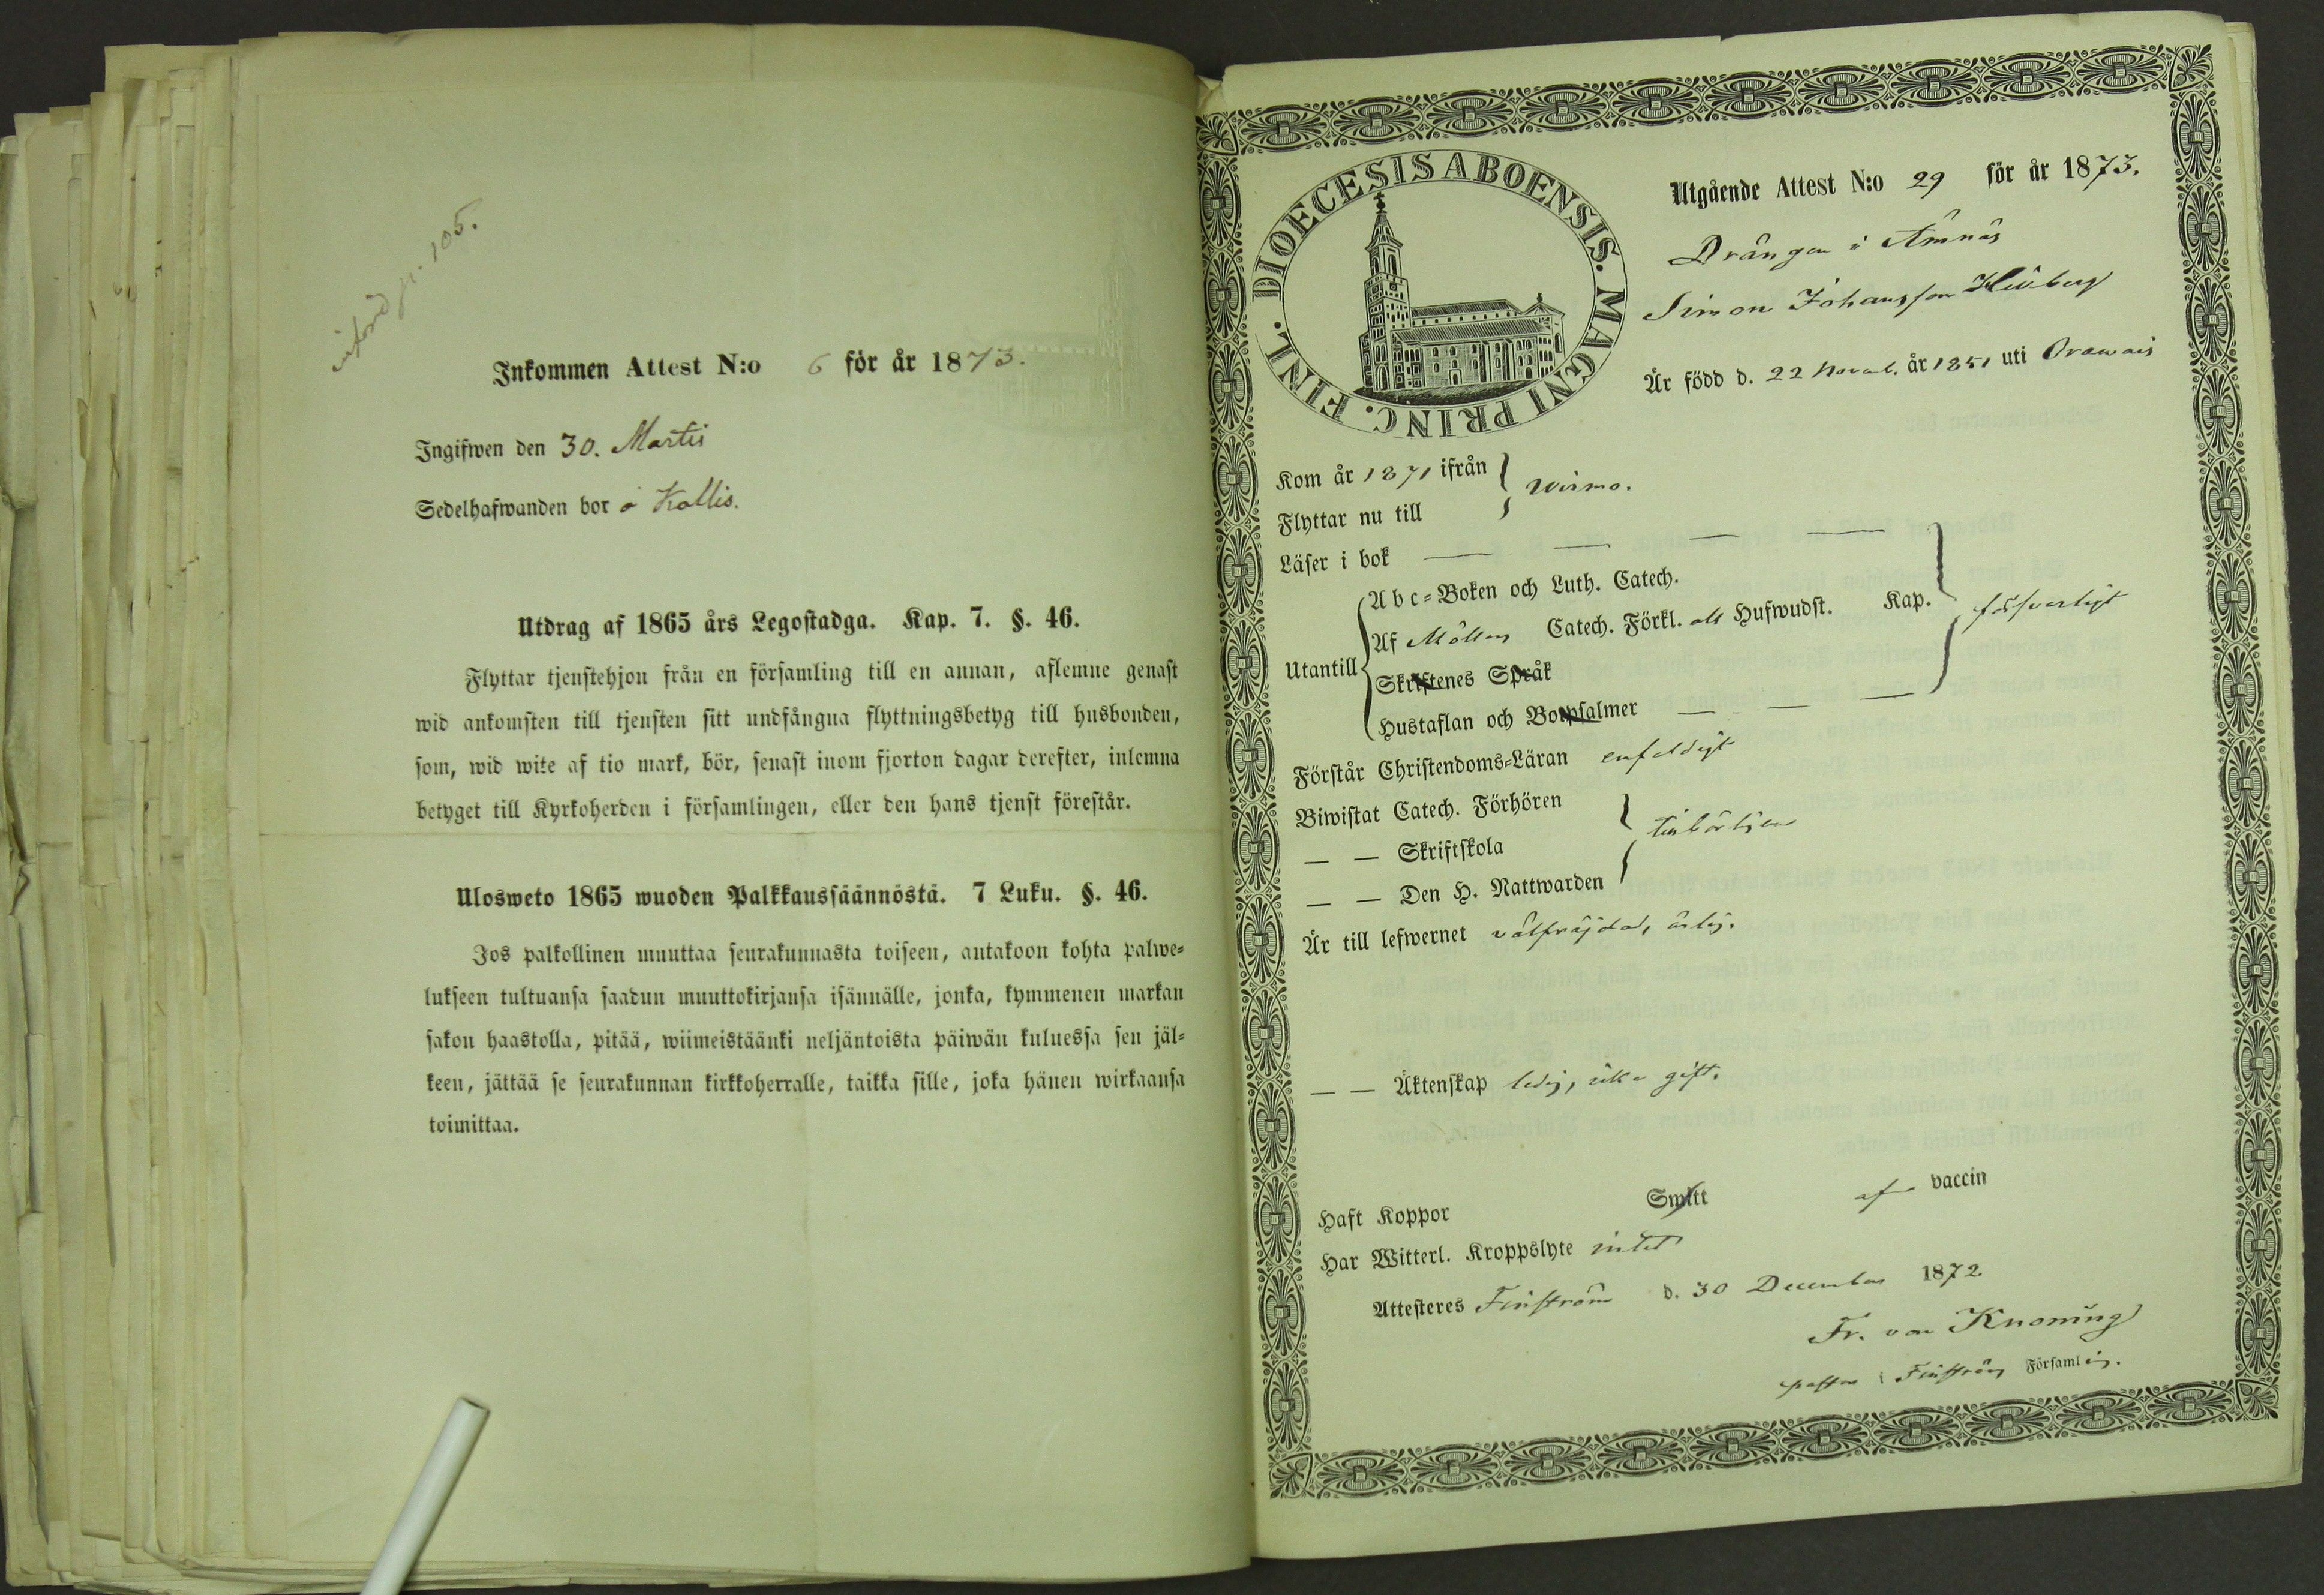 införd p. 105.
Inkommen Attest N:o 6 för år 1873.
Ingifwen den 30. Martii
Sedelhafwanden bor å Kallis.
Utdrag af 1865 års Legostadga. Kap. 7. §. 46.
Flyttar tjenstehjon från en församling till en annan, aflemne genast
wid ankomsten till tjensten sitt undfångna flyttningsbetyg till husbonden,
som, wid wite af tio mark, bör, senast inom fjorton dagar derefter, inlemna
betyget till Kyrkoherden i församlingen, eller den hans tjenst förestår.
Ulosweto 1865 wuoden Palkkaussäännöstä. 7 Luku. §. 46.
Jos palkollinen muuttaa seurakunnasta toiseen, antakoon kohta palwe-
lukseen tultuansa saadun muuttokirjansa isännälle, jonka, kymmenen markan
sakon haastolla, pitää, wiimeistäänki neljäntoista päiwän kuluessa sen jäl-
keen, jättää se seurakunnan kirkkoherralle, taikka sille, joka hänen wirkaansa
toimittaa.
DIOECESIS ABOENSIS. MAGNI PRINC. FINL.
Utgående Attest N:o 29 för år 1873.
Drängen i Ämnäs
Simon Johansson
Är född d. 22 Novemb. år 1851 uti Orawais
Kom år 1871 ifrån
Wirmo.
Flyttar nu till
Läser i bok — — — —
Abc-Boken och Luth. Catech.
Utantill Af Möllers Catech. Förkl. all Hufwudst. Kap. försvarligt
Skriftenes Språk
Hustaflan och Botpsalmer — — —
Förstår Christendoms-Läran enfaldigt
Biwistat Catech. Förhören
— — Skriftskola tillbörligen
— — Den H. Nattwarden
Är till lefwernet välfräjdad, ärlig.
— — Äktenskap ledig, icke gift.
Haft Koppor Smitt af vaccin
Har Witterl. Kroppslyte intet
Attesteres Finström d. 30 December 1872
Fr. von Knorring
pastor i Finströms Församling.